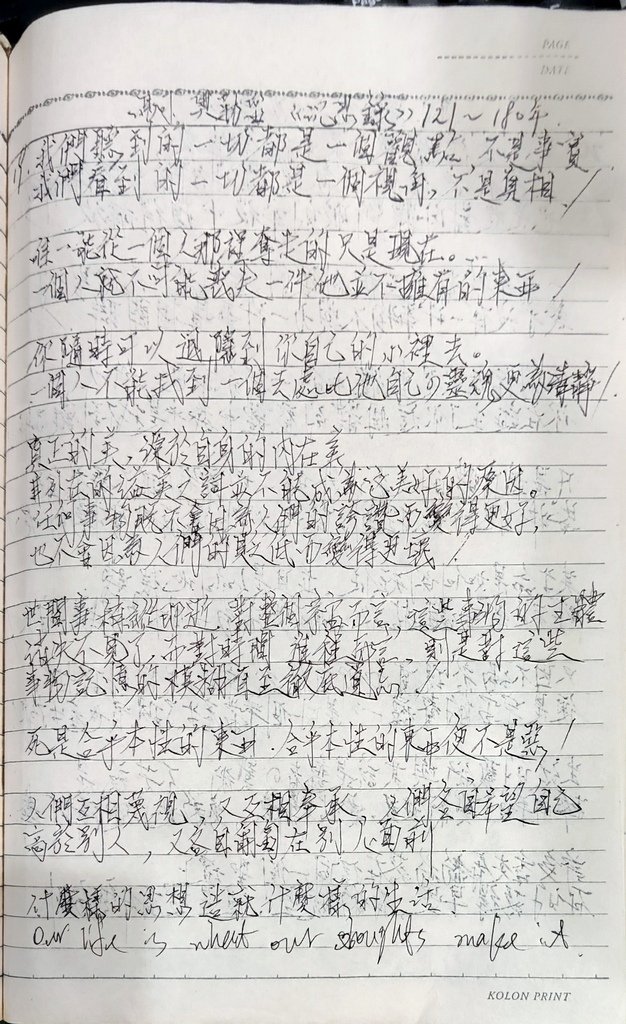 PAGE
DATE
奧勒 《沉思錄》 121～180年
我們聽到的一切都是一個觀點, 不是事實
我們看到的一切都是一個視角, 不是真相
唯一能從一個人那裡奪走的只是現在。
一個人就不可能丟失一件他並不擁有的東西
你隨時可以退隱到你自己的心裡去。
一個人不能找到一個去處比他自己的靈魂更清靜
真正的美, 源於自身的內在美
事後的溢美之詞並不能成為它美好的原因。
任何事物既不會因為人們的讚而變得更好,
也不會因為人們的貶低而變得更壞
世間事稍縱即逝, 對整個而言, 這些事物的主體
消失不見了, 而對時間而言, 則是對這些
事物記憶的模糊直至徹底遺忘
死是合乎本性的東西, 合乎本性的東西便不是惡
人們互相蔑視, 又互相奉承, 人們各自希望自己
高於別人, 又各自匍匐在別人面前
什麼樣的思想造就什麼樣的生活
Our life is what our thoughts make it
KOLON PRINT